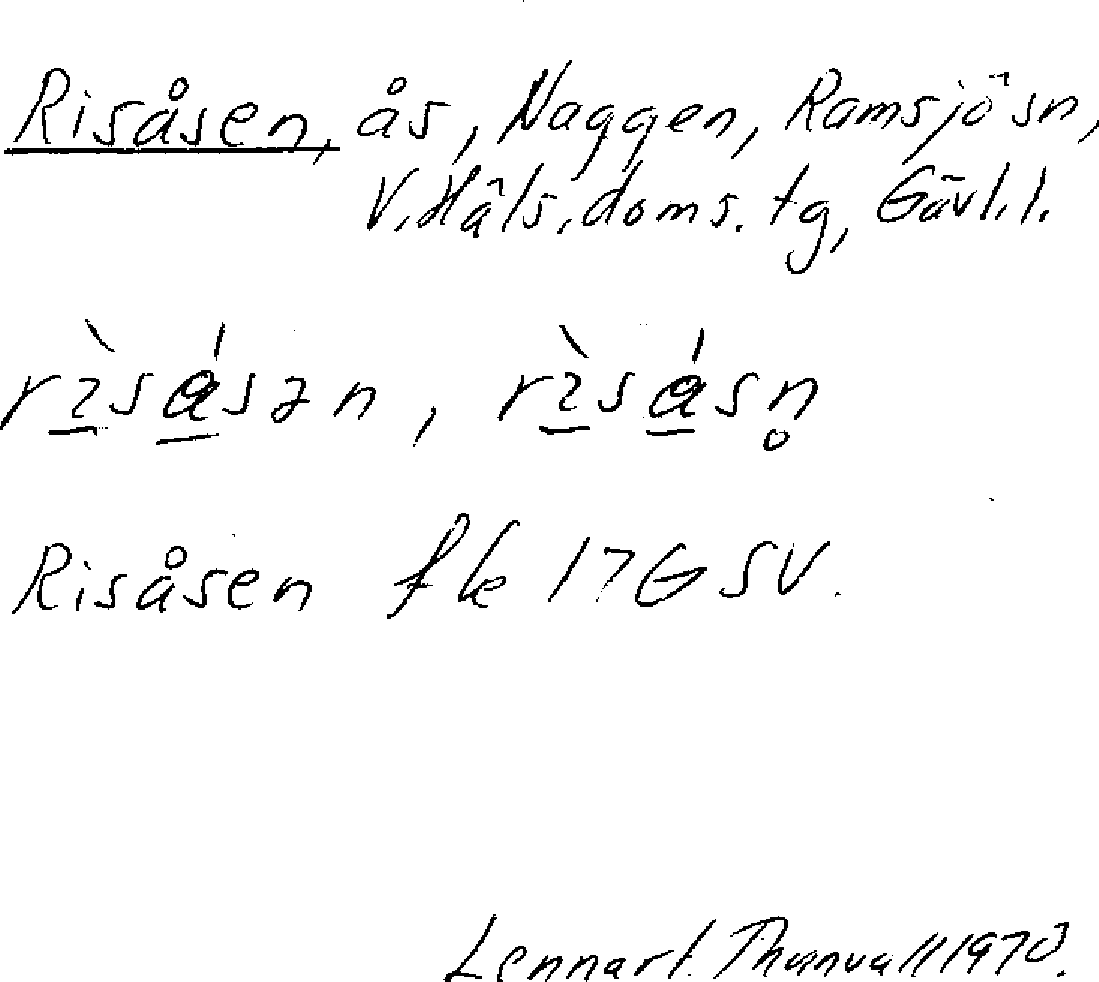 Risåsen, ås, Naggen, Ramsjö sn,
V. Häls. doms. tg, Gävl. l.
rı̀sásən, rı̀sásn̥
Risåsen fk 17G SV.
Lennart. Thunvall 1970.